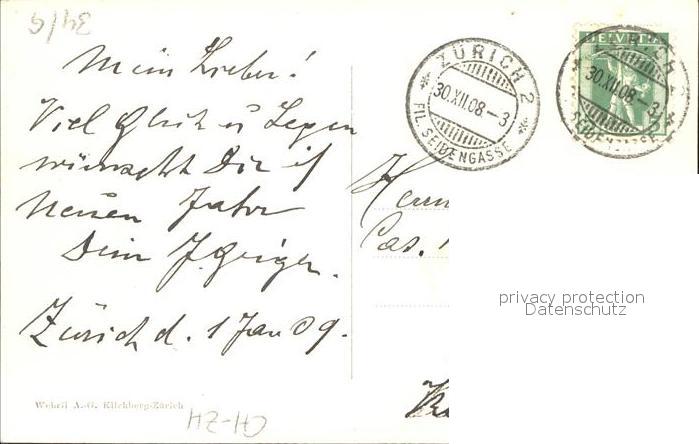 34/9
Mein Lieber!
Viel Glück u Segen
wünscht Dir i/
Neuen Jahr
Dein J. Geiger.
Zürich d. 1 Jan 09.
Wehrli A.-G. Kilchberg-Zürich
CH-ZH
ZÜRICH 2
30.XII.08.–3
FIL. SEIDENGASSE
HELVETIA
30.XII.08.–3
Herrn
Cas.
privacy protection
Datenschutz